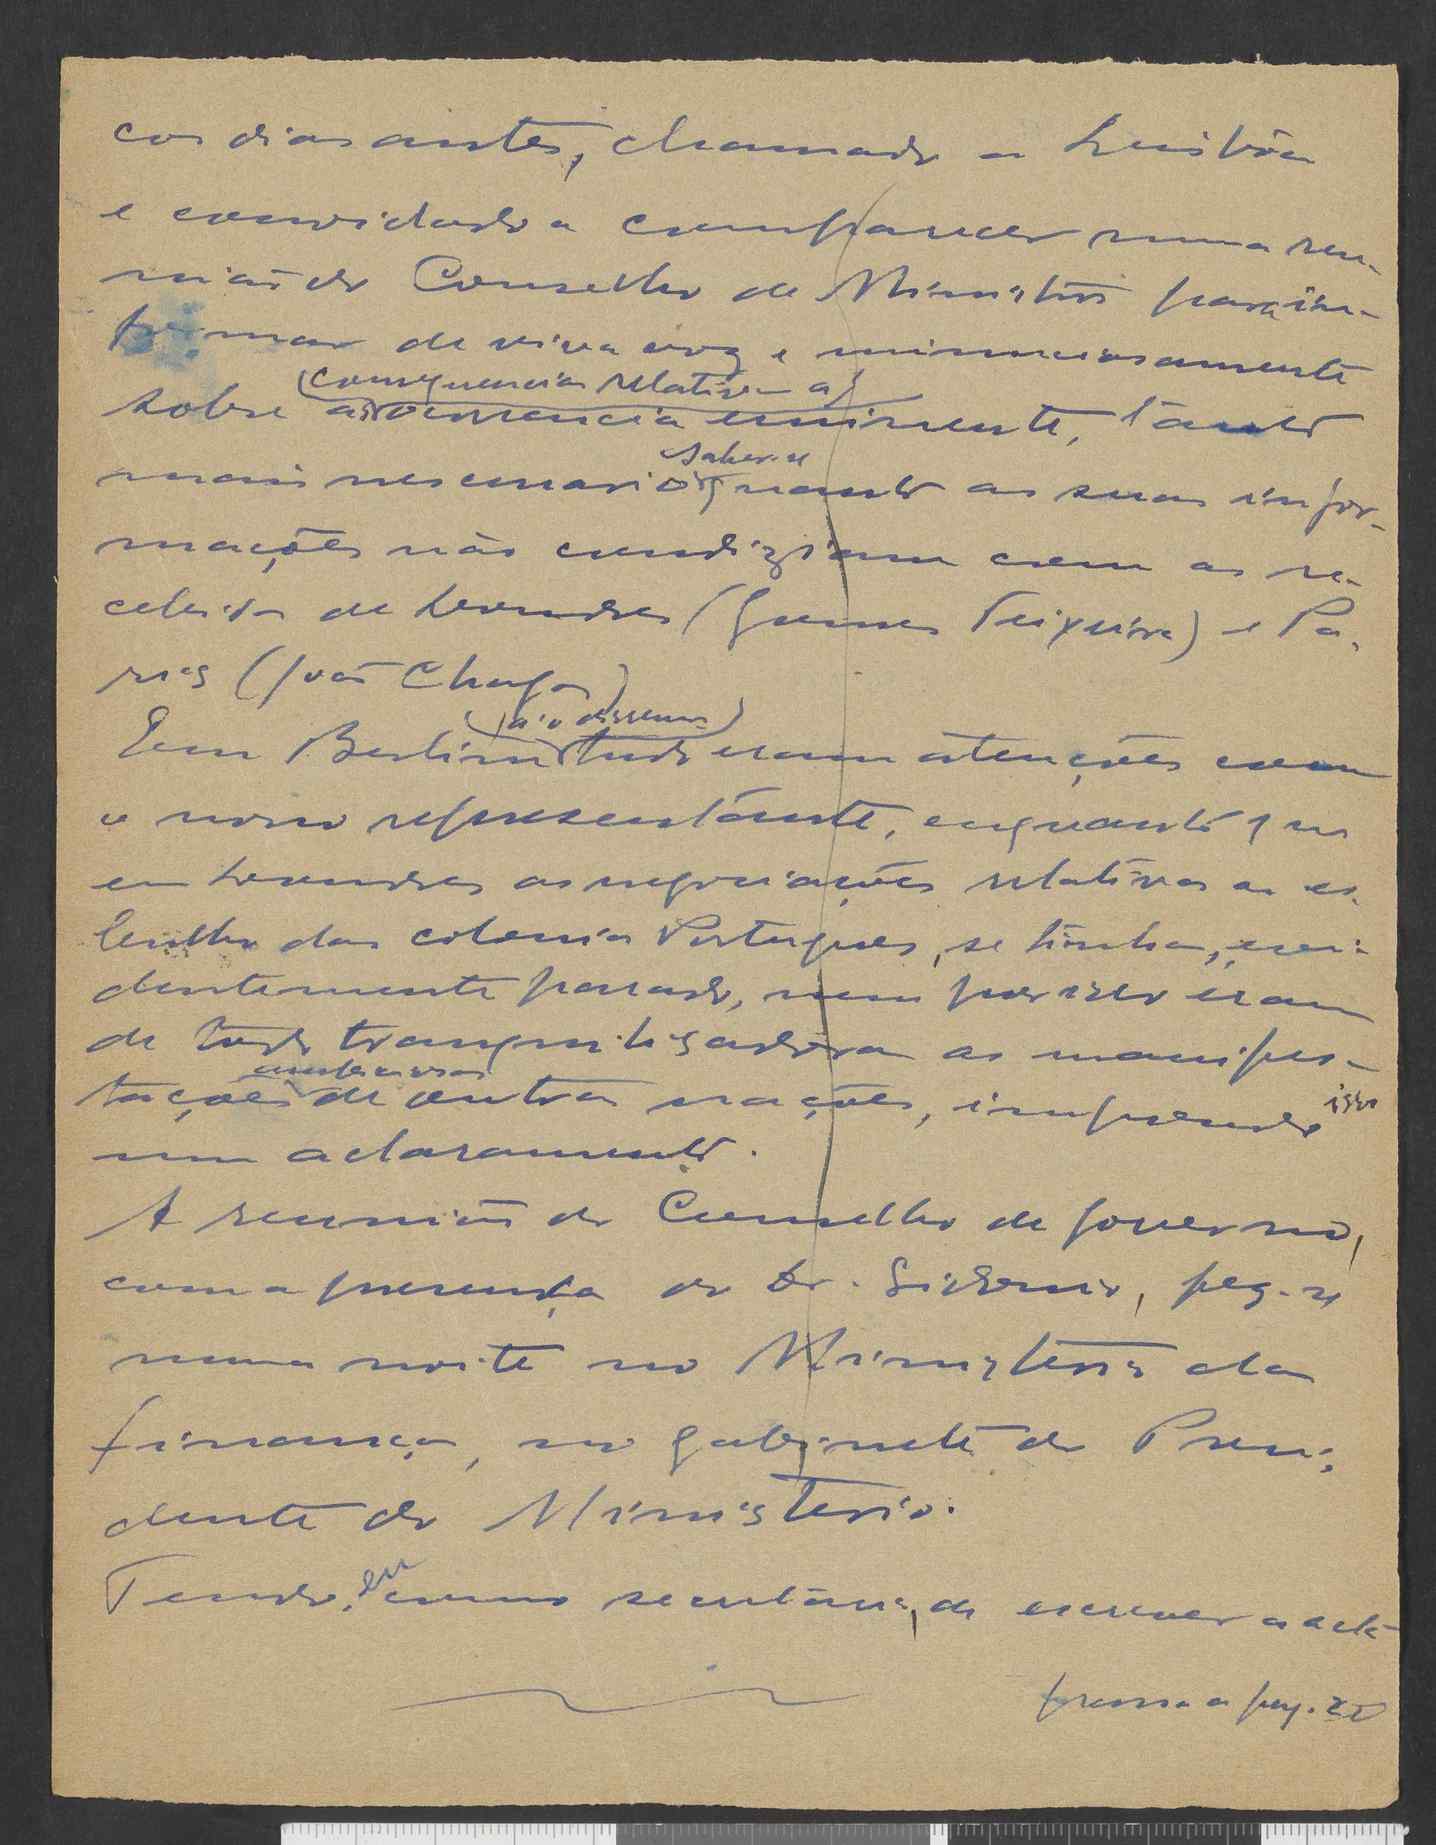 cos dias antes, chamado a Lisbôa
e convidado a comparecer numa reu-
nião do Conselho de Ministros para in-
formar de viva voz e minuciosamente
(consequencias relativas a)
sobre a ocorrencia eminente, tanto
saber-se
mais necessario quanto as suas infor-
mações não condiziam com as re-
cebidas de Londres (Gomes Teixeira) e Pa-
ris (João Chagas)
(já o dissemos)
Em Berlim tudo eram atenções com
o nosso representante, enquanto q as
em Londres as negociações relativas ao es-
bulho das colonias Portuguesas, se tinham, evi-
dentemente parado, nem por isso eram
de todo tranquilisadoras as manifes-
tações de outras nações, impondo isso
um aclaramento.
A reunião do Conselho de Governo,
com a presença do Dr. Sidonio, fez-se
numa noite no Ministerio das
finanças, no gabinete do Presi-
dente do Ministerio.
Tendo, eu como secretario, de escrever a acta
passa a pag.